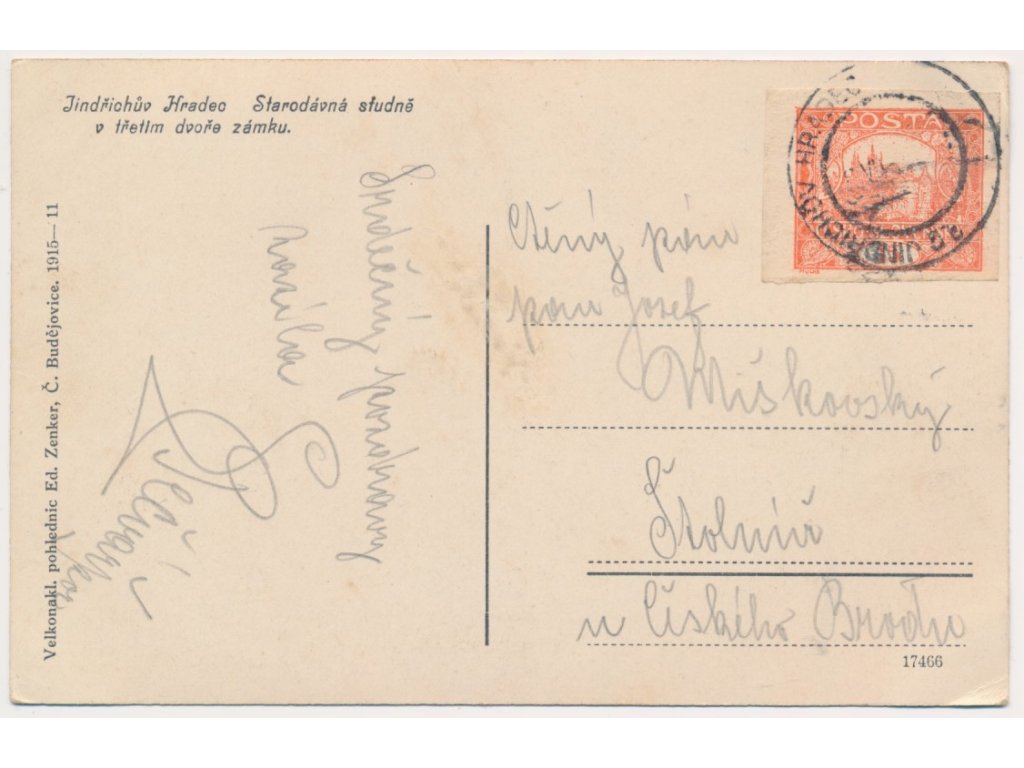 Jindřichův Hradec Starodávná studně
v třetím dvoře zámku.
Velkonakl. pohlednic Ed. Zenker, Č. Budějovice. 1915—11
Srdečný pozdrav
zasílá
POŠTA
JINDŘICHŮV HRADEC
Ctěný pán
pan Josef
Miškovský
Štolmíř
u Českého Brodu
17466